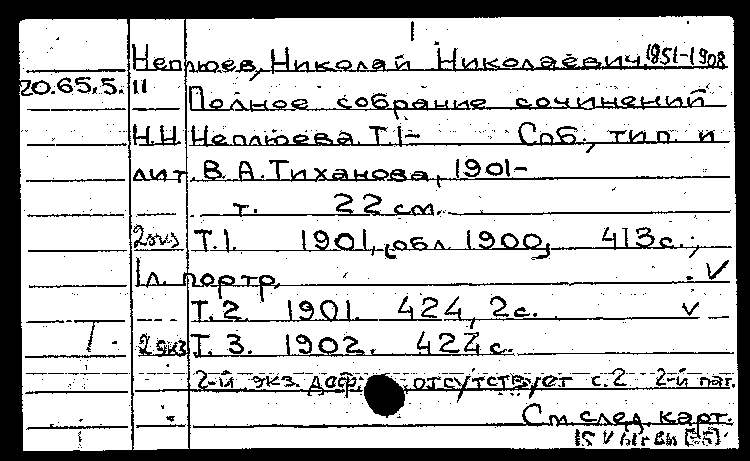 1
Неплюев, Николай Николаевич, 1851-1908
20.65.5.11
Полное собрание сочинений
Н.Н. Неплюева. Т.1- Спб., тип. и
лит. В.А. Тиханова, 1901-
т. 22 см.
2 экз Т.1. 1901, [обл. 1900], 413 с.,
1 л. портр. V
Т.2. 1901. 424, 2 с. V
2 экз Т.3. 1902. 424 с.
2-й экз. деф.: отсутствует с.2 2-й паг.
См. след. карт.